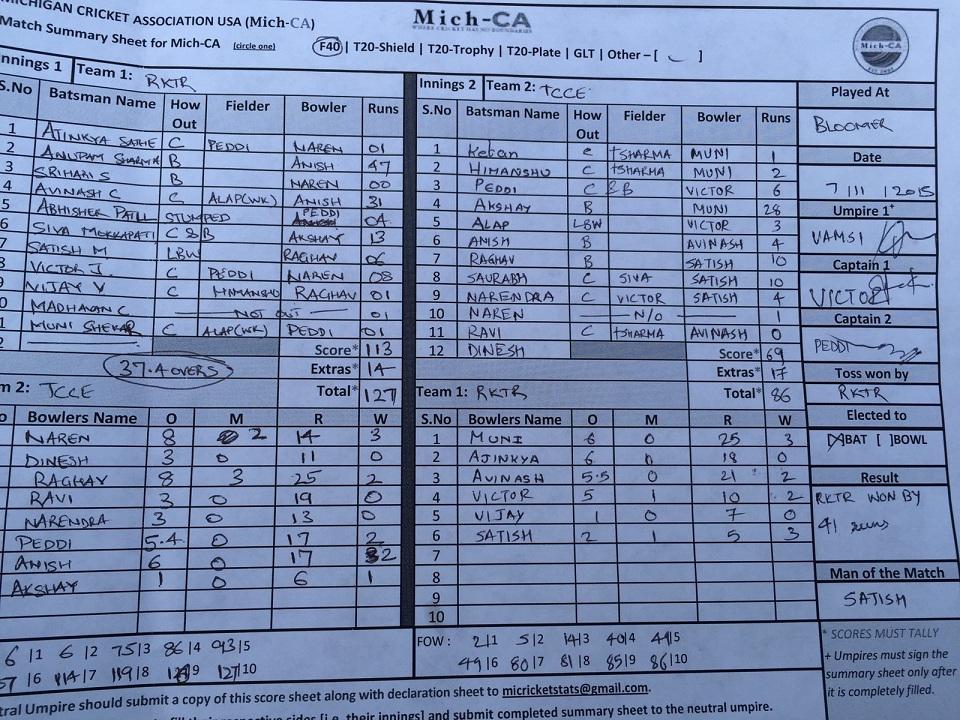 MICHIGAN CRICKET ASSOCIATION USA (Mich-CA)
Mich-CA
Match Summary Sheet for Mich-CA (circle one) F40 | T20-Shield | T20-Trophy | T20-Plate | GLT | Other – [ ]
Mich-CA
Innings 1 Team 1: RKTR
S.No Batsman Name How Out Fielder Bowler Runs
1 AJINKYA SATHE C PEDDI NAREN 01
2 ANUPAM SHARMA B ANISH 47
3 SRIHARI S B NAREN 00
4 AVINASH C C ALAP(WK) ANISH 31
5 ABHISHEK PATIL STUMPED PEDDI 04
6 SIVA MOKKAPATI C & B AKSHAY 13
7 SATISH M LBW RAGHAV 06
8 VICTOR J. C PEDDI NAREN 08
9 VIJAY V C HIMANSHU RAGHAV 01
0 MADHAVAN C NOT OUT 01
1 MUNI SHEKAR C ALAP(WK) PEDDI 01
2
Score* 113
37.4 OVERS Extras* 14
Total* 127
m 2: TCCE
o Bowlers Name O M R W
NAREN 8 2 14 3
DINESH 3 0 11 0
RAGHAV 8 3 25 2
RAVI 3 0 19 0
NARENDRA 3 0 13 0
PEDDI 5.4 0 17 2
ANISH 6 0 17 2
AKSHAY 1 0 6 1
6|1 6|2 75|3 86|4 93|5
57|6 114|7 119|8 127|10
Innings 2 Team 2: TCCE
S.No Batsman Name How Out Fielder Bowler Runs
1 Ketan c tSHARMA MUNI 1
2 HIMANSHU C tSHARMA MUNI 2
3 PEDDI C &B VICTOR 6
4 AKSHAY B MUNI 28
5 ALAP LBW VICTOR 3
6 ANISH B AVINASH 4
7 RAGHAV B SATISH 10
8 SAURABH C SIVA SATISH 10
9 NARENDRA C VICTOR SATISH 4
10 NAREN N/O 1
11 RAVI C tSHARMA AVINASH 0
12 DINESH
Score* 69
Extras* 17
Total* 86
Team 1: RKTR
S.No Bowlers Name O M R W
1 MUNI 6 0 25 3
2 AJINKYA 6 0 18 0
3 AVINASH 5.5 0 21 2
4 VICTOR 5 1 10 2
5 VIJAY 1 0 7 0
6 SATISH 2 1 5 3
7
8
9
10
FOW : 2|1 5|2 14|3 40|4 44|5
49|6 80|7 81|8 85|9 86|10
Played At
BLOOMER
Date
7/11/2015
Umpire 1+
VAMSI
Captain 1
VICTOR
Captain 2
PEDDI
Toss won by
RKTR
Elected to
[X]BAT [ ]BOWL
Result
RKTR WON BY
41 runs
Man of the Match
SATISH
* SCORES MUST TALLY
+ Umpires must sign the
summary sheet only after
it is completely filled.
tral Umpire should submit a copy of this score sheet along with declaration sheet to micricketstats@gmail.com.
respective sides [i.e. their innings] and submit completed summary sheet to the neutral umpire.